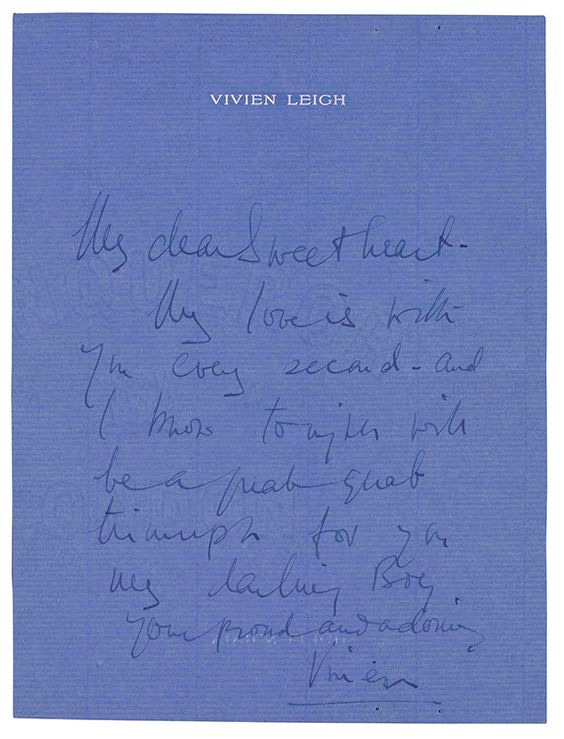 VIVIEN LEIGH
My dear Sweetheart -
My love is with
you every second - and
I know tonight will
be a great great
triumph for you
my darling Boy
your proud and adoring
Vivien